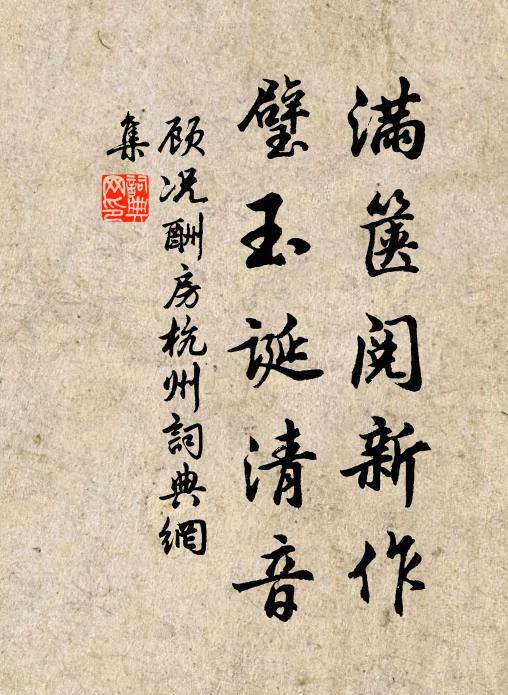 满箧阅新作
璧玉诞清音
顾况酬房杭州詞典網
集
詞典
网印